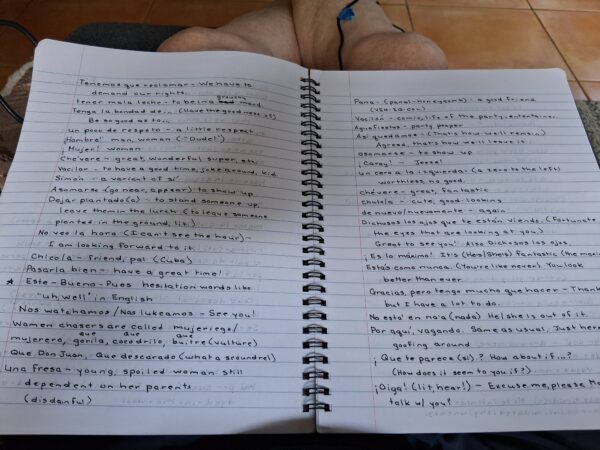 Tenemos que reclamar - We have to
demand our rights.
tener mala leche - to be in a grouchy mood
Tenga la bondad de... (Have the goodness of)
Be so good as to...
un poco de respeto - a little respect
¡Hombre! man, woman (-"Dude!")
¡Mujer! woman
Chévere - great, wonderful, super, etc.
Vacilar - to have a good time, joke around, kid
Simón - a variant of sí
Asomarse (go near, appear) to show up
Dejar plantado(a) - to stand someone up,
leave them in the lurch (to leave someone
planted in the ground, lit.)
No veo la hora (I can't see the hour) -
I am looking forward to it.
Chico/a - friend, pal (Cuba)
Pasarla bien - have a great time!
★ Este - Bueno - Pues hesitation words like
"uh, well" in English
Nos watchamos / Nos lukeamos - See you!
Women chasers are called mujeriego/
mujerero, gorila, cocodrilo, buitre (vulture)
que que que
Que Don Juan, Que descarado (what a scoundrel)
Una fresa - young, spoiled woman still
dependent on her parents
(disdainful)
Pana - (panal - honeycomb) : a good friend
Vacilón - comic, life of the party, entertainer
Aguafiestas - party pooper
Así quedamos - (That's how we'll remain)
Agreed, that's how we'll leave it.
asomarse - to show up
¡Caray! - Jeese!
un cero a la izquierda - (a zero to the left)
worthless, no good
chévere - great, fantastic
chulo/a - cute, good-looking
de nuevo/nuevamente - again
Dichosos los ojos que te están viendo. (Fortunate
the eyes that are looking at you)
Great to see you! Also Dichosos los ojos.
¡Es lo máximo! It's (He's/She's) Fantastic (the
Estás como nunca. (You're like never) You look
better than ever.
Gracias, pero tengo mucho que hacer - Thank
but I have a lot to do.
No está en na'a (nada) He/she is out of it.
Por aquí, vagando. Same as usual. Just here
goofing around
¿Que te parece (si)? How about if...?
(How does it seem to you if?)
¡Oiga! (lit, hear!) - Excuse me, please
talk w/ you?